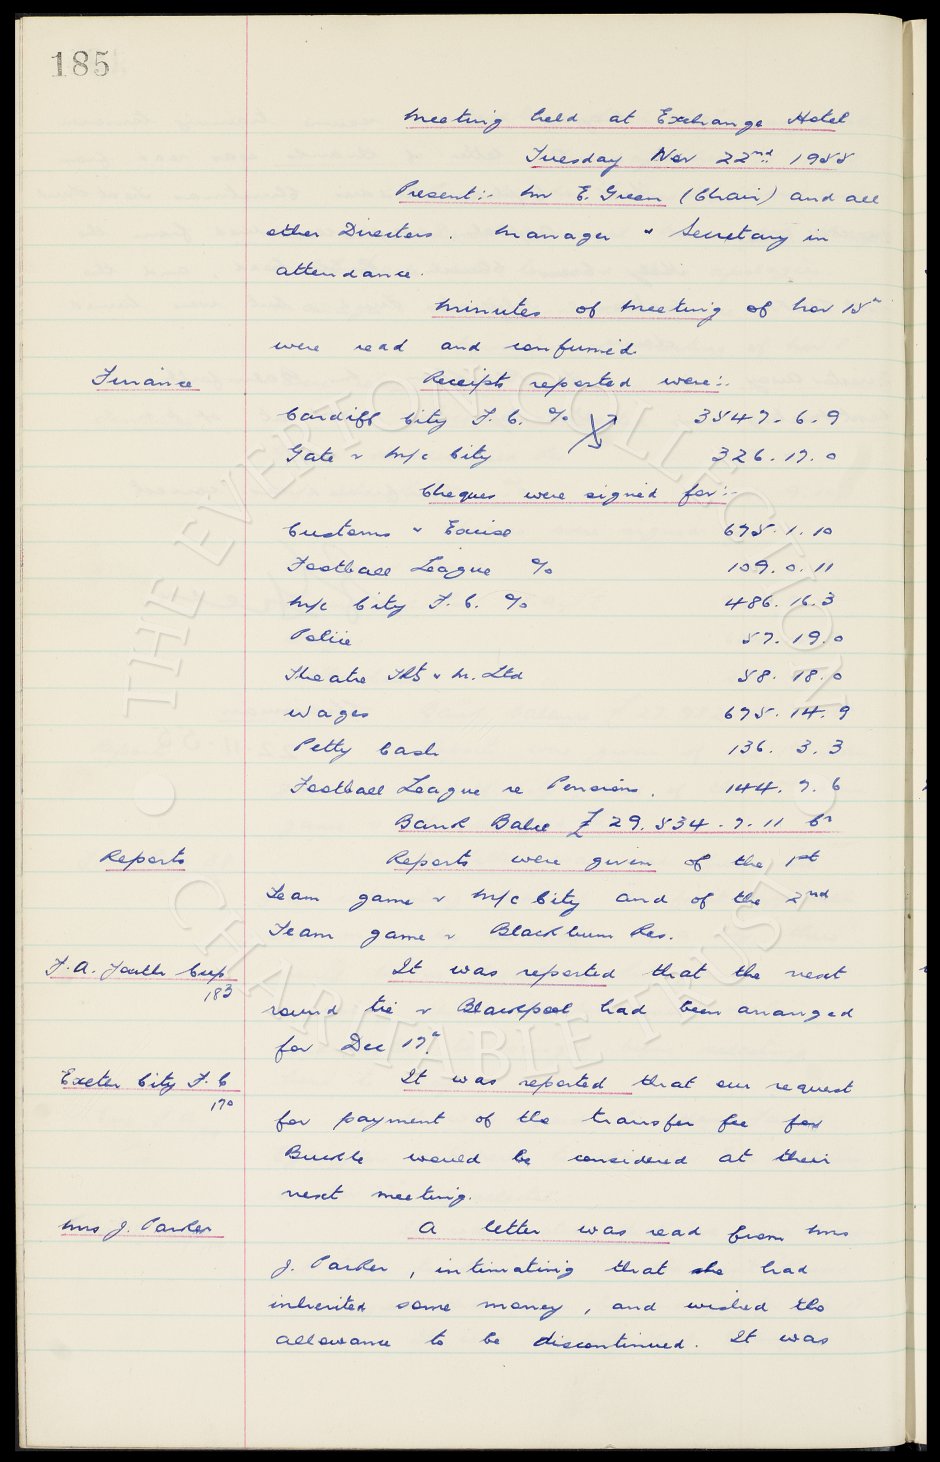 185
Meeting held at Exchange Hotel
Tuesday Nov 22nd 1955
Present:- Mr E. Green (Chair) and all
other Directors. Manager & Secretary in
attendance.
Minutes of Meeting of Nov 15th
were read and confirmed.
Finance
Receipts reported were:-
Cardiff City F.C. %
3547. 6. 9
Gate v M/c City
326. 17. 0
Cheques were signed for:-
Customs & Excise
675. 1. 10
Football League %
109. 0. 11
M/c City F.C. %
486. 16. 3
Police
57. 19. 0
Theatre & M. Ltd
58. 18. 0
Wages
675. 14. 9
Petty Cash
136. 3. 3
Football League re Pensions.
144. 7. 6
Bank Balce £29,534. 7. 11 Cr
Reports
Reports were given of the 1st
Team game v M/c City and of the 2nd
Team game v Blackburn Res.
F.A. Youth Cup
183
It was reported that the next
round tie v Blackpool had been arranged
for Dec 17th.
Exeter City F.C
170
It was reported that our request
for payment of the transfer fee for
Buckle would be considered at their
next meeting.
Mrs J. Parker
A letter was read from Mrs
J. Parker, intimating that she had
inherited some money, and wished the
allowance to be discontinued. It was
THE EVERTON COLLECTION
CHARITABLE TRUST